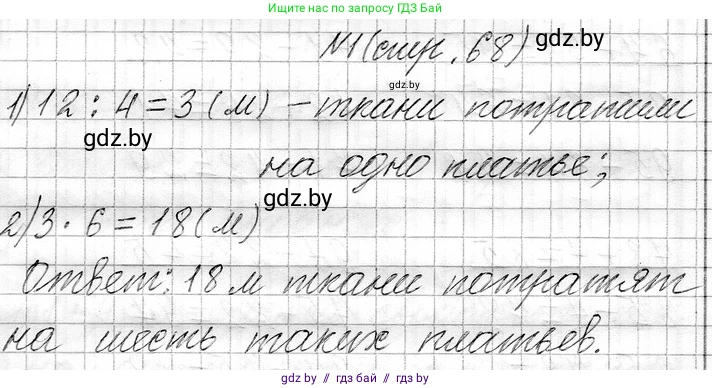 Ищите нас по запросу ГДЗ Бай
№1 (стр. 68) gdz.by
gdz.by
1) 12 : 4 = 3 (м) – ткани потратили
gdz.by
на одно платье;
gdz.by
2) 3 · 6 = 18 (м)
Ответ: 18 м ткани потратят
на шесть таких платьев.
gdz.by // гдз бай // gdz.by